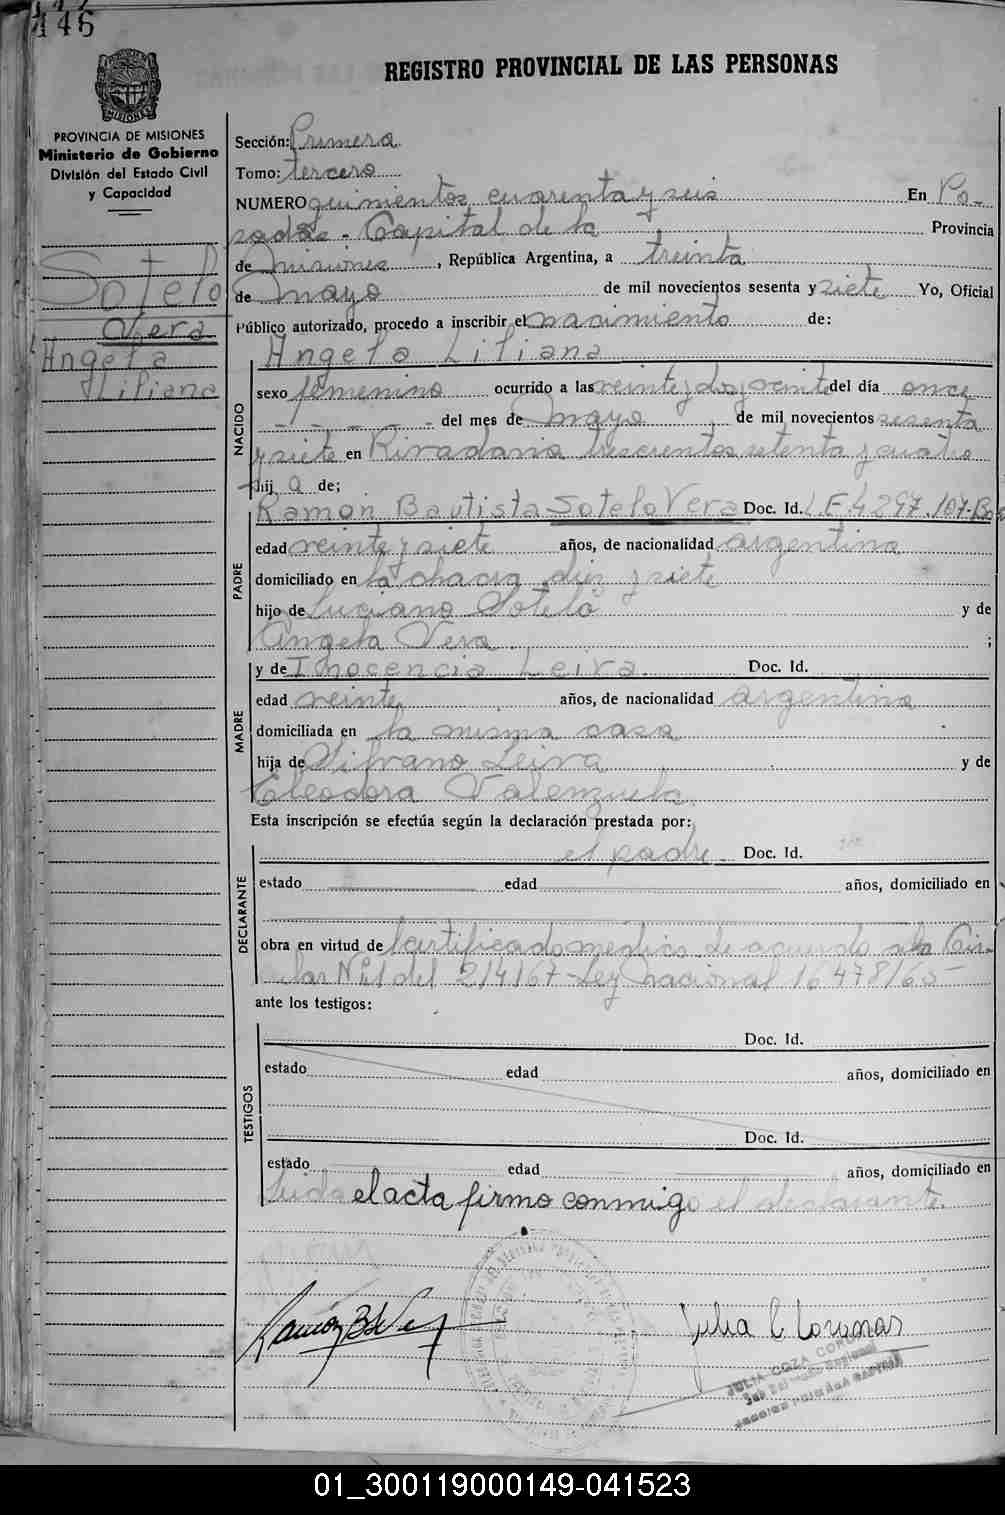 146
REGISTRO PROVINCIAL DE LAS PERSONAS
MISIONES
PROVINCIA DE MISIONES
Ministerio de Gobierno
División del Estado Civil
y Capacidad
Sotelo
Vera
Angela
Liliana
Sección: Primera
Tomo: tercero
NUMERO quinientos cuarenta y seis En Po-
sadas - Capital de la Provincia
de Misiones, República Argentina, a treinta
de mayo de mil novecientos sesenta y siete Yo, Oficial
Público autorizado, procedo a inscribir el nacimiento de:
Angela Liliana
NACIDO
sexo femenino ocurrido a las veinte y dos y veinte del día once
del mes de mayo de mil novecientos sesenta
y siete en Rivadavia trescientos setenta y cuatro
hija de;
PADRE
Ramon Bautista Sotelo Vera Doc. Id. L.E 4297.107
edad veinte y siete años, de nacionalidad argentina
domiciliado en la chacra diez y siete
hijo de Luciano Sotelo y de
Angela Vera ;
MADRE
y de Inocencia Leiva. Doc. Id.
edad veinte años, de nacionalidad argentina
domiciliada en la misma casa
hija de Silvano Leiva y de
Eleodora Valenzuela.
Esta inscripción se efectúa según la declaración prestada por:
DECLARANTE
el padre Doc. Id.
estado edad años, domiciliado en
obra en virtud de certificado medico de acuerdo a la Cir-
cular Nº 21 del 2/4/67 - Ley nacional 16478/65 -
ante los testigos:
TESTIGOS
Doc. Id.
estado edad años, domiciliado en
Doc. Id.
estado edad años, domiciliado en
Leida el acta firmo conmigo el declarante.
Ramón B S Vera
Julia C Coronas
JULIA COZA
01_300119000149-041523